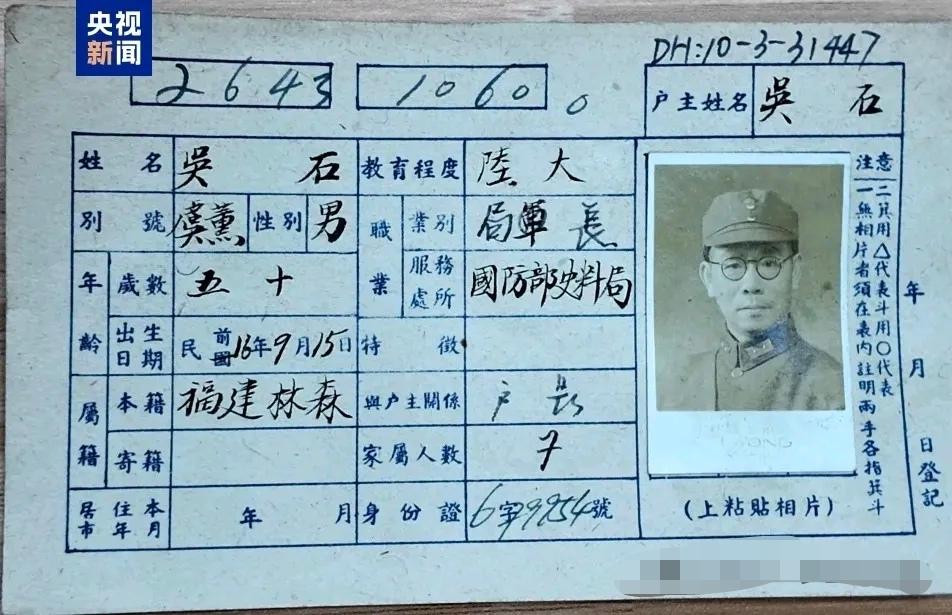 央视
新闻
2643
1060
0
DH:10-3-31447
户主姓名 吳石
姓名 吳石 教育程度 陸大
別號 虞薰 性別 男 職業 業別 局軍長
年齡 歲數 五十 服務處所 國防部史料局
出生日期 民前國16年9月15日 特徵
屬籍 本籍 福建林森 與户主關係 户長
寄籍 家屬人數 7
居住本市年月 年 月 身份證 6字9254號
注意
一無相片者須在表內註明兩手各指箕斗
二箕用△代表斗用○代表
(上粘貼相片)
年 月 日登記